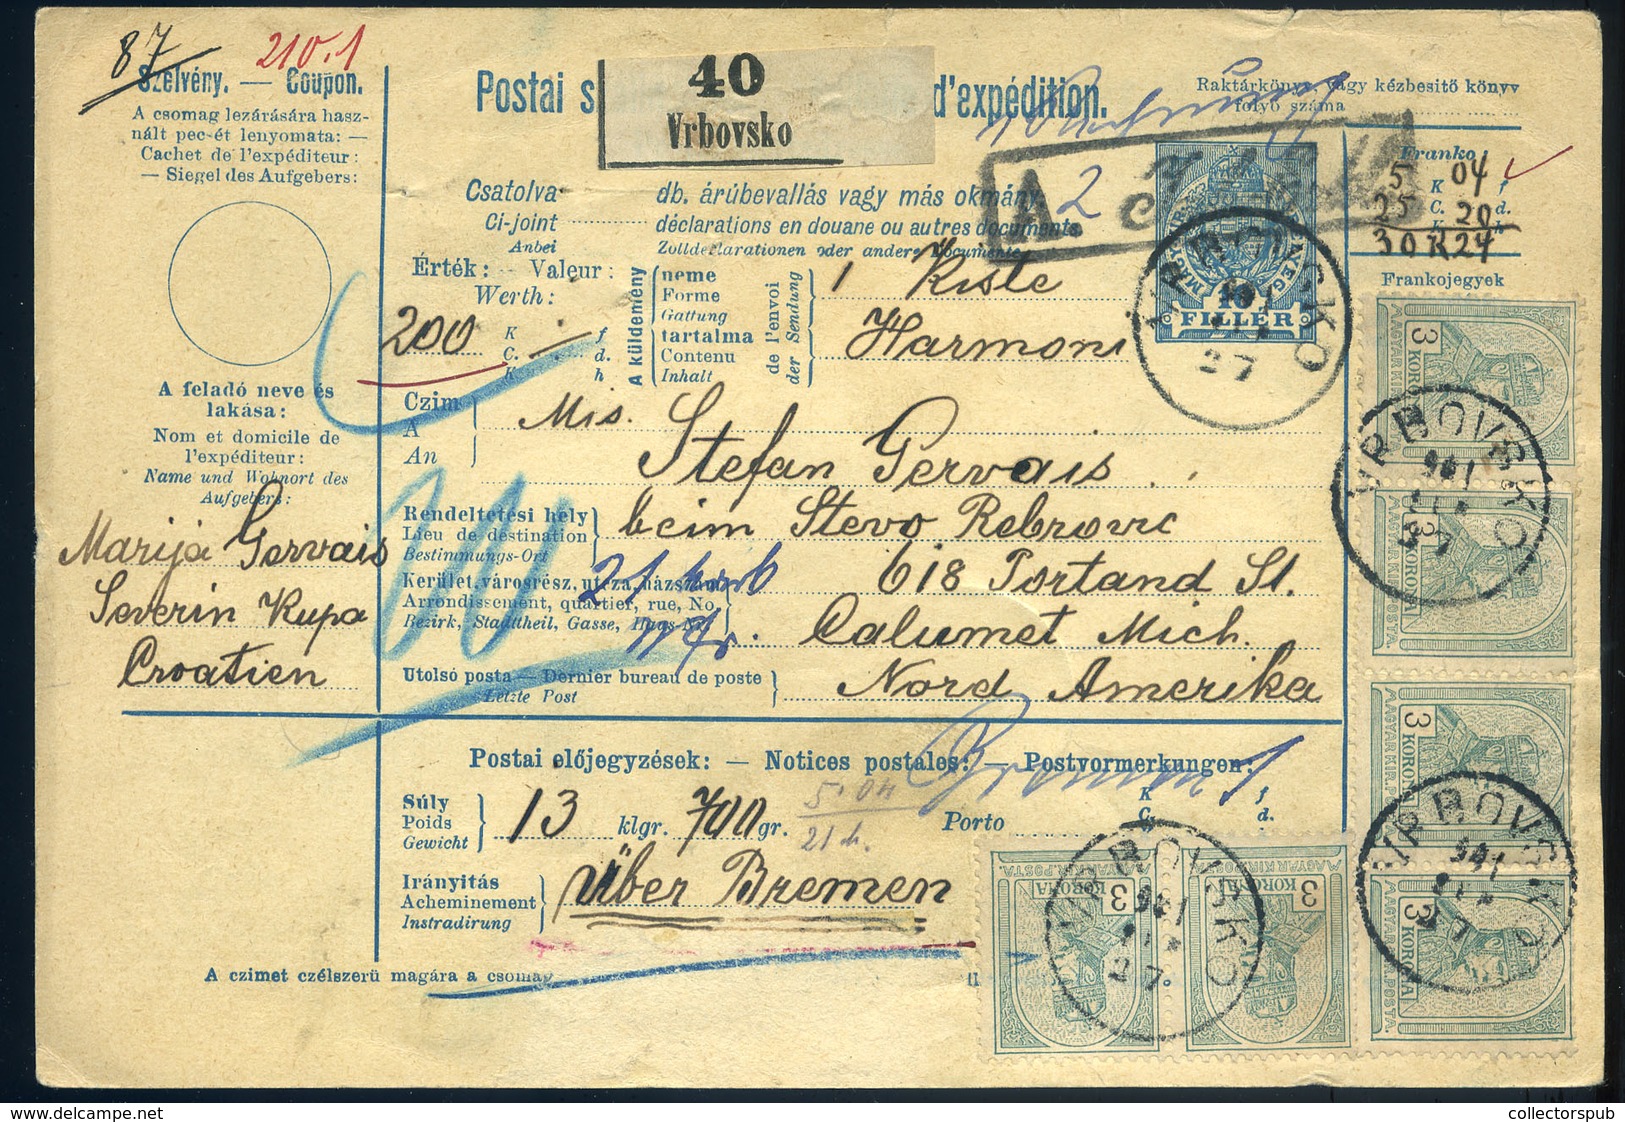 87
210.1
Szelvény. — Coupon.
A csomag lezárására hasz-
nált pecsét lenyomata: —
Cachet de l'expéditeur:
— Siegel des Aufgebers:
A feladó neve és
lakása:
Nom et domicile de
l'expéditeur:
Name und Wohnort des
Aufgebers:
Marija Gervais
Severin Kupa
Croatien
Postai s
40
Vrbovsko
d'expédition.
Raktárkönyv vagy kézbesitö könyv
folyó száma
Csatolva
db. árúbevallás vagy más okmány
Ci-joint
déclarations en douane ou autres documents
Anbei
Zolldeclarationen oder andere Documente
A. 2
Franko
5 K 04 f
25 C. 20 d.
30 K 24 h
Frankojegyek
Érték: — Valeur:
Werth:
200
K f
C. d.
K h
A küldemény
neme
Forme
Gattung
tartalma
Contenu
Inhalt
de l'envoi
der Sendung
1 Kiste
Harmoni
MAGYAR
10
FILLÉR
VRBOVSKO
27
Czim
A
An
Mis.
Stefan Gervais
Rendeltetési hely
Lieu de destination
Bestimmungs-Ort
beim Stevo Rebrovic
Kerület, városrész, utcza, házszám
Arrondissement, quartier, rue, No
Bezirk, Stadttheil, Gasse, Haus-Nr.
618 Portand St.
Calumet Mich.
Utolsó posta — Dernier bureau de poste
Letzte Post
Nord Amerika
Postai előjegyzések: — Notices postales: — Postvormerkungen:
Bremen
Súly
Poids
Gewicht
13 klgr. 700 gr.
5.04
Porto
K f
C. d.
Irányitás
Acheminement
Instradirung
Über Bremen
A czimet czélszerü magára a csomag
3 KORONA
MAGYAR KIR. POSTA
3 KORONA
MAGYAR KIR. POSTA
3 KORONA
MAGYAR KIR. POSTA
3 KORONA
MAGYAR KIR. POSTA
3 KORONA
MAGYAR KIR. POSTA
3 KORONA
MAGYAR KIR. POSTA
VRBOVSKO
27
VRBOVSKO
27
VRBOVSKO
27
collectorspub